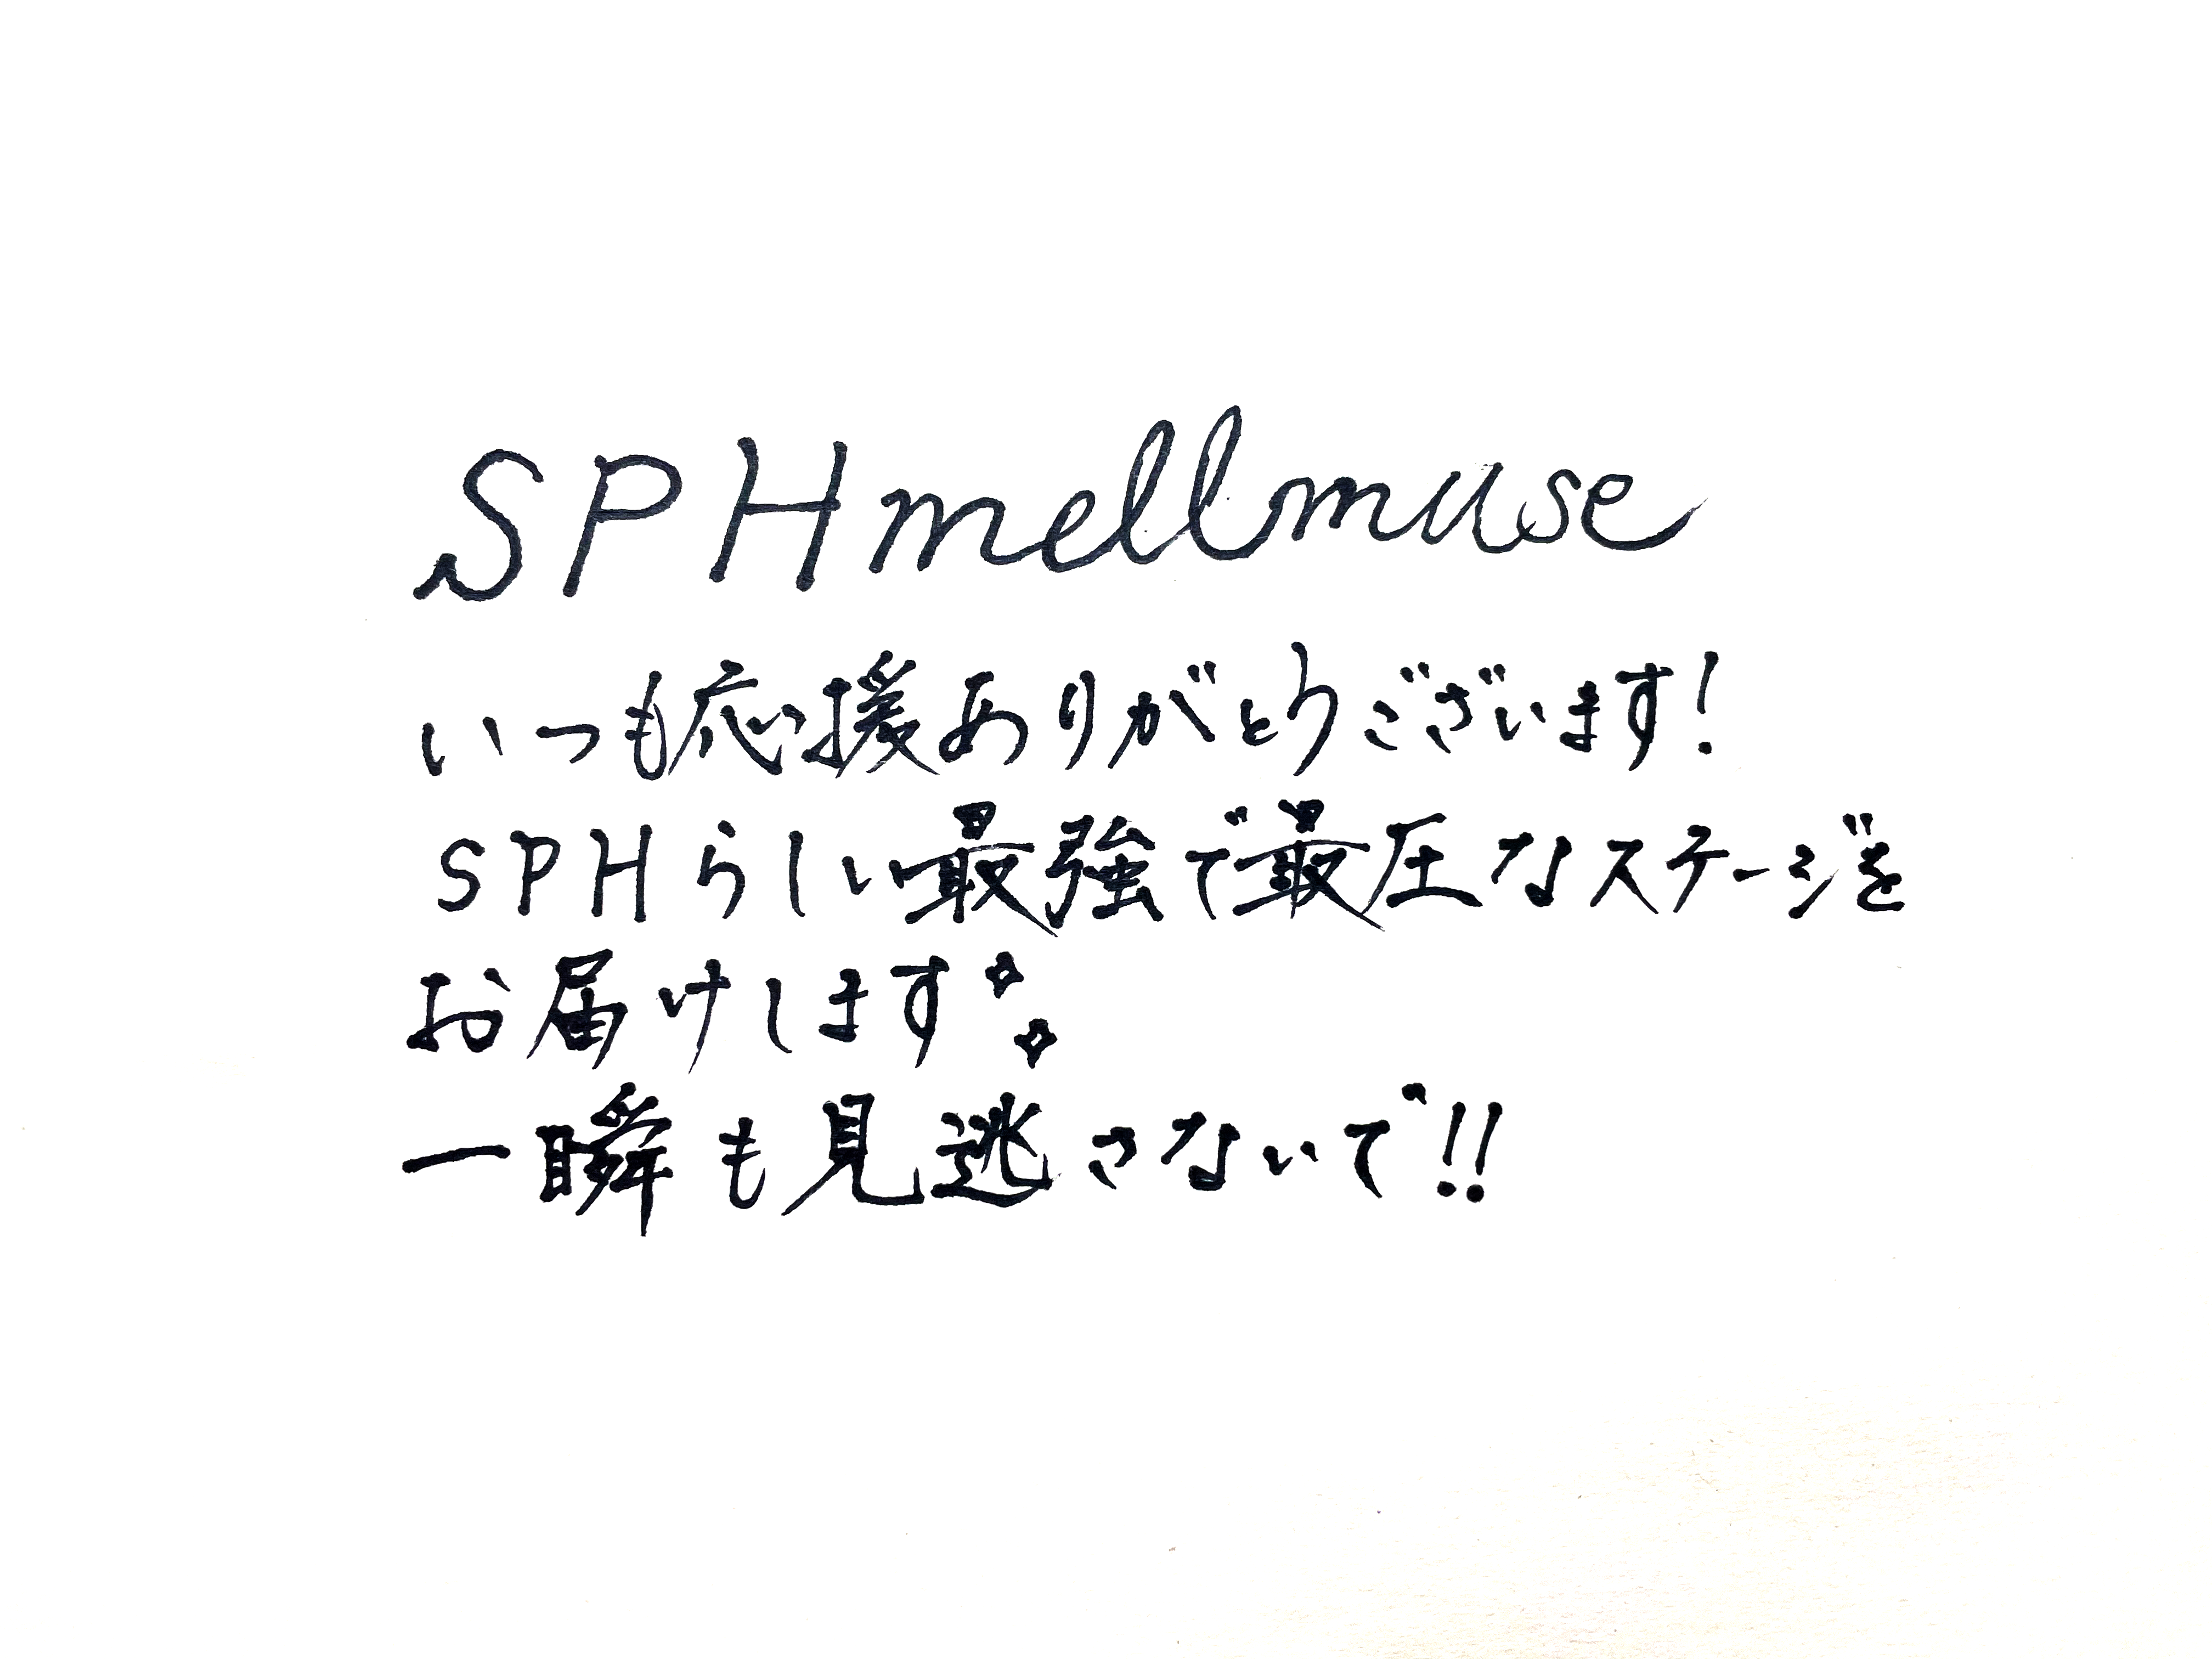 SPHmellmuse
いつも応援ありがとうございます!
SPHらしい最強で最圧なステージを
お届けします✧✧
一瞬も見逃さないで!!